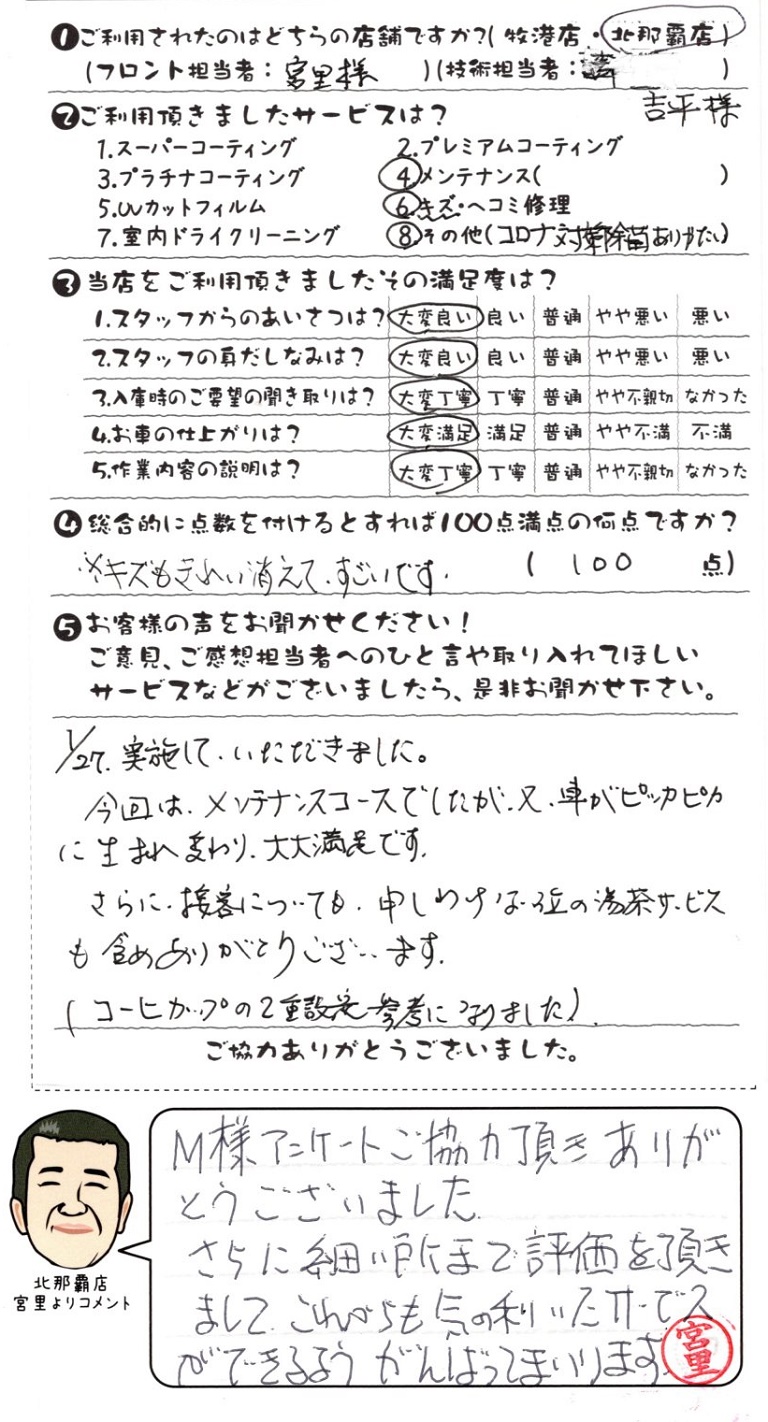 ❶ご利用されたのはどちらの店舗ですか?(牧港店・北那覇店)
(フロント担当者:宮里様)(技術担当者:
吉平様
❷ご利用頂きましたサービスは?
1.スーパーコーティング 2.プレミアムコーティング
3.プラチナコーティング 4.メンテナンス( )
5.UVカットフィルム 6.キズ・ヘコミ修理
7.室内ドライクリーニング 8.その他(コロナ対策除菌ありがたい)
❸当店をご利用頂きましたその満足度は?
1.スタッフからのあいさつは? 大変良い 良い 普通 やや悪い 悪い
2.スタッフの身だしなみは? 大変良い 良い 普通 やや悪い 悪い
3.入庫時のご要望の聞き取りは? 大変丁寧 丁寧 普通 やや不親切 なかった
4.お車の仕上がりは? 大変満足 満足 普通 やや不満 不満
5.作業内容の説明は? 大変丁寧 丁寧 普通 やや不親切 なかった
❹総合的に点数を付けるとすれば100点満点の何点ですか?
※キズもきれい消えて、すごいです。 (100 点)
❺お客様の声をお聞かせください!
ご意見、ご感想担当者へのひと言や取り入れてほしい
サービスなどがございましたら、是非お聞かせ下さい。
1/27、実施して、いただきました。
今回は、メンテナンスコースでしたが、又、車がピッカピカ
に生まれ変わり、大大満足です。
さらに、接客についても、申しわけない位の湯茶サービス
も含めありがとうございます。
(コーヒカップの2重設定参考になりました)
ご協力ありがとうございました。
M様アンケートご協力頂きありが
とうございました。
さらに細い所まで評価を頂き
まして、これからも気の利いたサービス
ができるようがんばってまいります。
宮里
北那覇店
宮里よりコメント